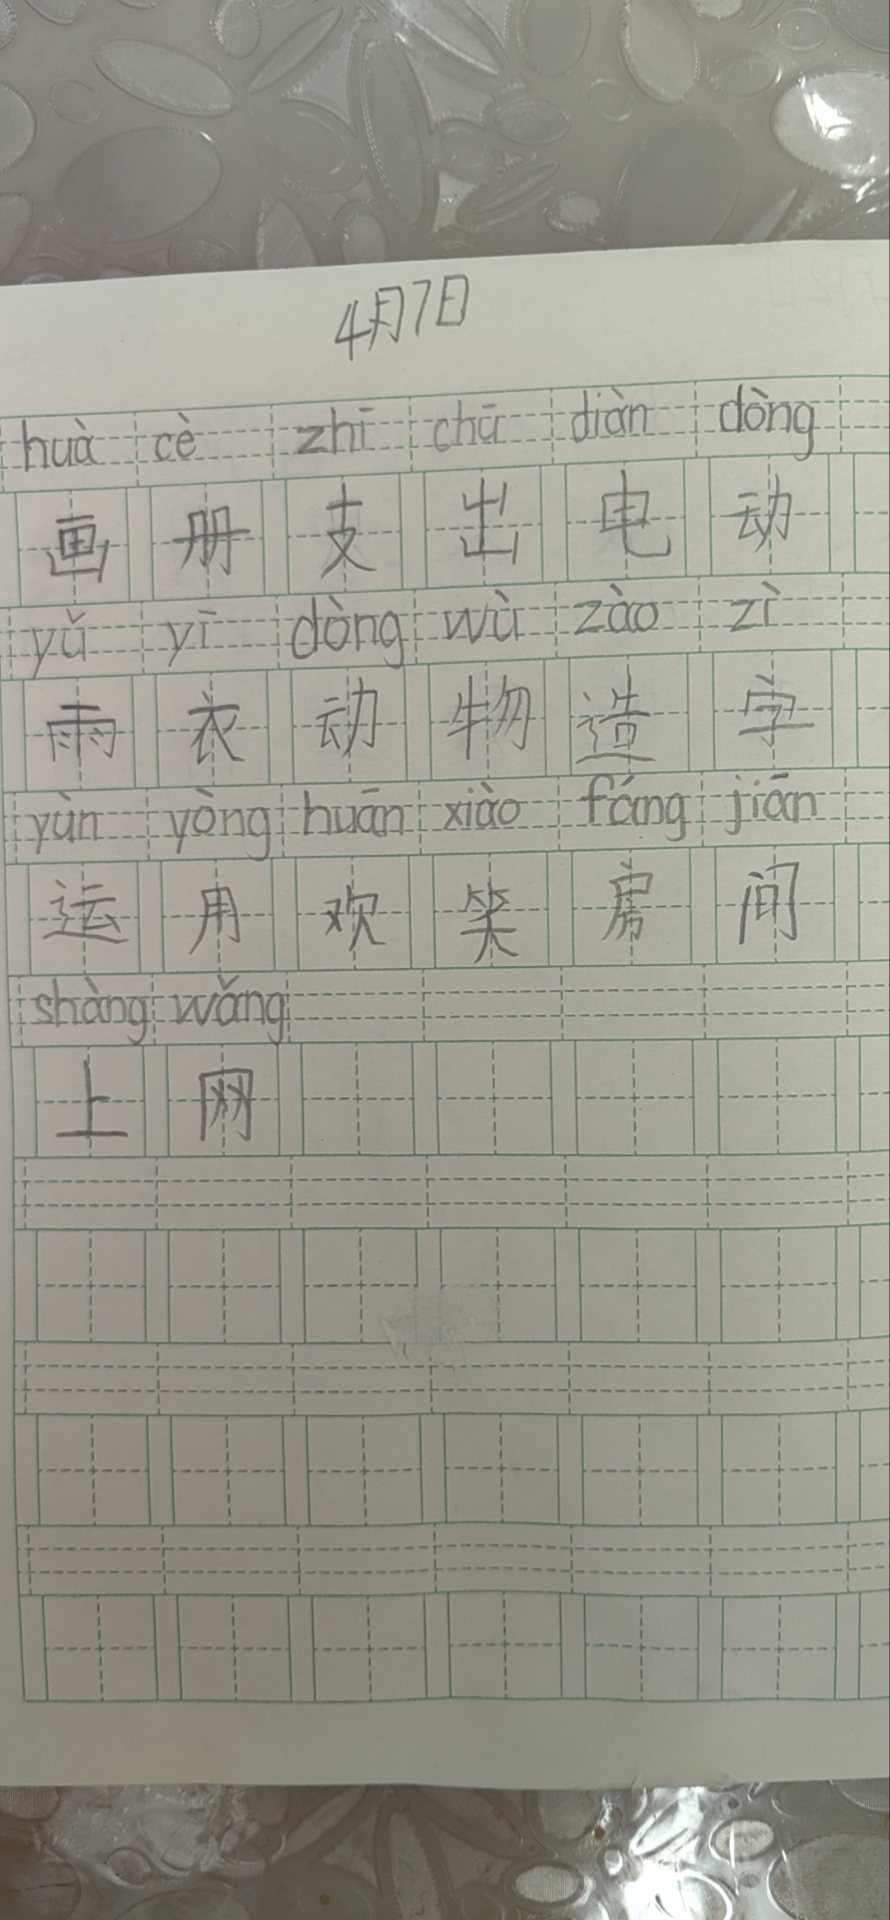 4月7日
huà cè zhī chū diàn dòng
画册支出电动
yǔ yī dòng wù zào zì
雨衣动物造字
yùn yòng huān xiào fáng jiān
运用欢笑房间
shàng wǎng
上网